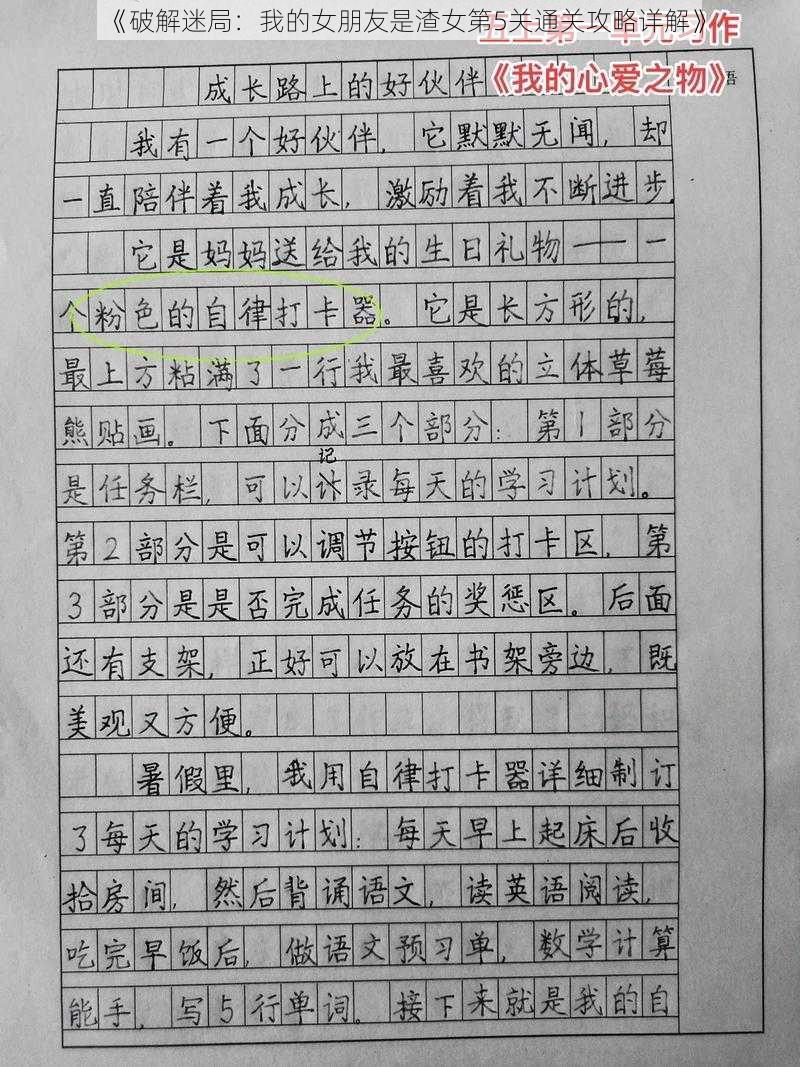 《破解迷局：我的女朋友是渣女第5关通关攻略详解》
五上第一单元习作
《我的心爱之物》
语
成长路上的好伙伴
我有一个好伙伴，它默默无闻，却
一直陪伴着我成长，激励着我不断进步。
它是妈妈送给我的生日礼物——一
个粉色的自律打卡器。它是长方形的，
最上方粘满了一行我最喜欢的立体草莓
熊贴画。下面分成三个部分：第1部分
记
是任务栏，可以计录每天的学习计划。
第2部分是可以调节按钮的打卡区，第
3部分是是否完成任务的奖惩区。后面
还有支架，正好可以放在书架旁边，既
美观又方便。
暑假里，我用自律打卡器详细制订
了每天的学习计划：每天早上起床后收
拾房间，然后背诵语文，读英语阅读，
吃完早饭后，做语文预习单，数学计算
能手，写5行单词。接下来就是我的自